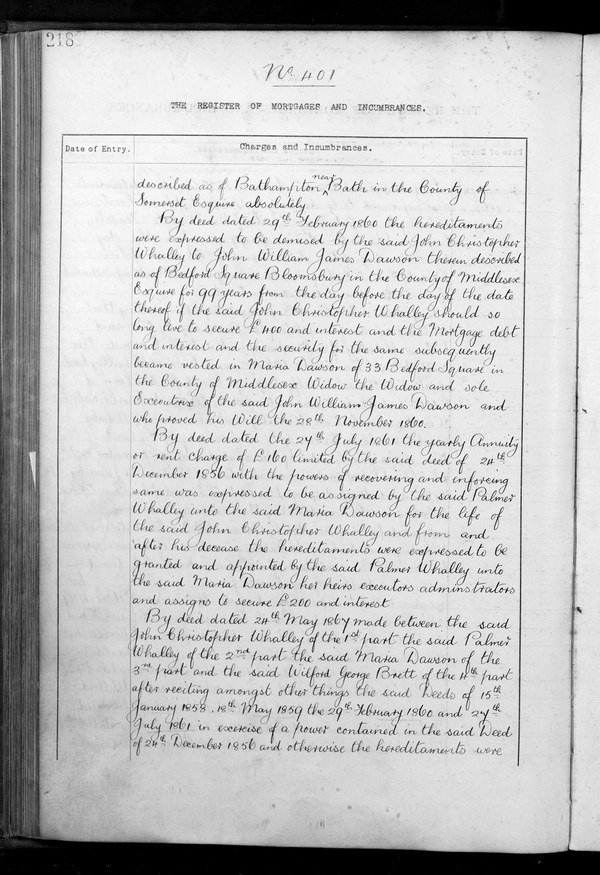 218
No 401
THE REGISTER OF MORTGAGES AND INCUMBRANCES.
Date of Entry.
Charges and Incumbrances.
described as of Bathampton near Bath in the County of
Somerset Esquire absolutely
By deed dated 29th February 1860 the hereditaments
were expressed to be demised by the said John Christopher
Whalley to John William James Dawson therein described
as of Bedford Square Bloomsbury in the County of Middlesex
Esquire for 99 years from the day before the day of the date
thereof if the said John Christopher Whalley should so
long live to secure £400 and interest and the Mortgage debt
and interest and the security for the same subsequently
became vested in Maria Dawson of 33 Bedford Square in
the County of Middlesex Widow the Widow and sole
Executrix of the said John William James Dawson and
who proved his Will the 28th November 1860.
By deed dated the 27th July 1861 the yearly Annuity
or rent charge of £160 limited by the said deed of 24th
December 1856 with the powers of recovering and inforcing
same was expressed to be assigned by the said Palmer
Whalley unto the said Maria Dawson for the life of
the said John Christopher Whalley and from and
after his decease the hereditaments were expressed to be
granted and appointed by the said Palmer Whalley unto
the said Maria Dawson her heirs executors adminstrators
and assigns to secure £200 and interest
By deed dated 24th May 1867 made between the said
John Christopher Whalley of the 1st part the said Palmer
Whalley of the 2nd part the said Maria Dawson of the
3rd part and the said Wilford George Brett of the 4th part
after reciting amongst other things the said Deeds of 15th
January 1858, 18th May 1859 the 29th February 1860 and 27th
July 1861 in exercise of a power contained in the said Deed
of 24th December 1856 and otherwise the hereditaments were